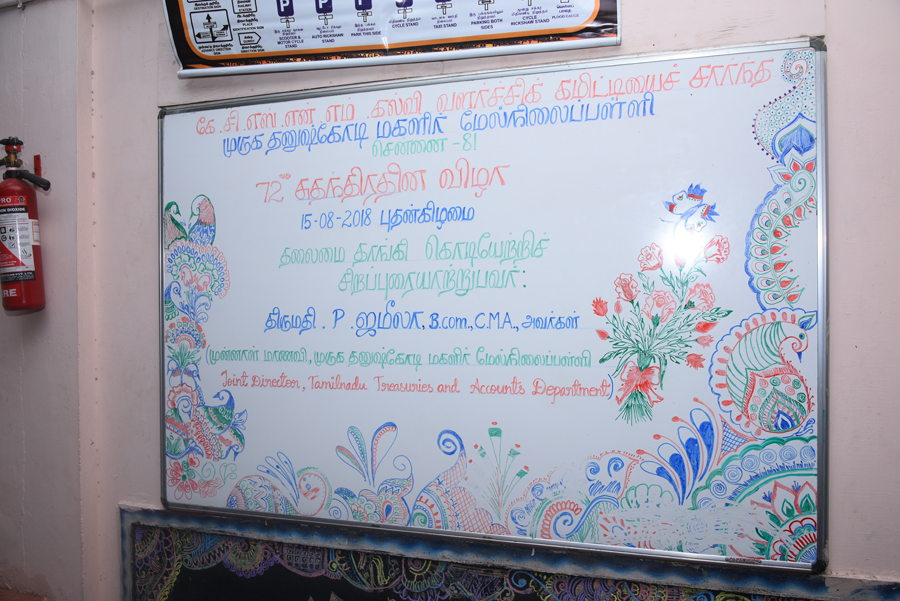 PLACE
IDENTIFICATION SIGN
ADVANCE DIRECTION
SIGN
DIRECTION
SIGN
SCOOTER &
MOTOR CYCLE
STAND
AUTO RICKSHAW
STAND
PARK THIS SIDE
CYCLE STAND
TAXI STAND
PARKING BOTH
SIDES
CYCLE
RICKSHAW STAND
FLOOD GAUGE
கே.சி.எஸ்.என்.எம். கல்வி வளர்ச்சிக் கமிட்டியைச் சார்ந்த
முருக தனுஷ்கோடி மகளிர் மேல்நிலைப்பள்ளி
சென்னை -81
72வது சுதந்திரதின விழா
15-08-2018 புதன்கிழமை
தலைமை தாங்கி கொடியேற்றிச்
சிறப்புரையாற்றுபவர்:
திருமதி. P. ஜமீலா, B.com., C.MA., அவர்கள்
(முன்னாள் மாணவி, முருக தனுஷ்கோடி மகளிர் மேல்நிலைப்பள்ளி
Joint Director, Tamilnadu Treasuries and Accounts Department)